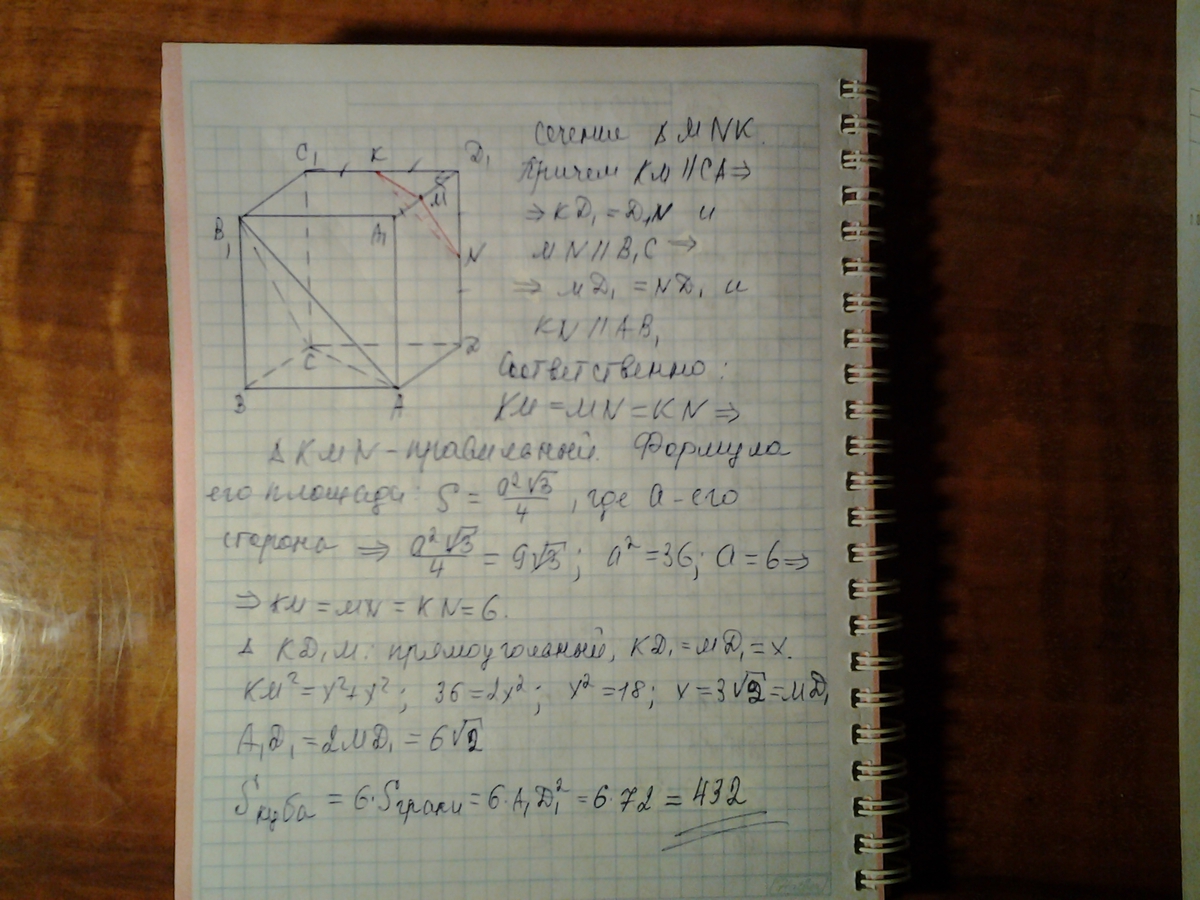 C₁ K D₁
M
B₁ A₁
N
C D
B A
Сечение Δ MNK.
Причем KM || CA ⇒
⇒ KD₁ = D₁N и
MN || B₁C ⇒
⇒ MD₁ = ND₁ и
KN || AB₁
Соответственно:
KM = MN = KN ⇒
Δ KMN - правильный. Формула
его площади: S = a²√3/4, где a - его
сторона ⇒ a²√3/4 = 9√3; a² = 36; a = 6 ⇒
⇒ KM = MN = KN = 6.
Δ KD₁M: прямоугольный, KD₁ = MD₁ = x.
KM² = x² + x²; 36 = 2x²; x² = 18; x = 3√2 = MD₁
A₁D₁ = 2MD₁ = 6√2
Sкуба = 6·Sграни = 6·A₁D₁² = 6·72 = 432